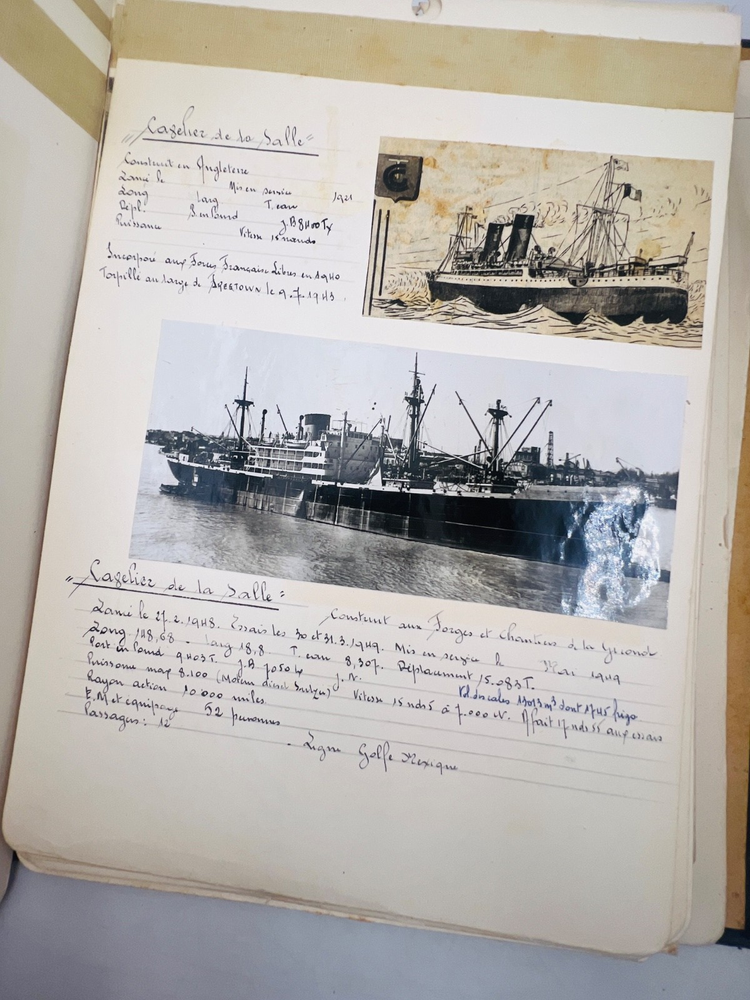 "Cavelier de la Salle"
Construit en Angleterre
Lancé le Mis en service 1921
Long larg T. eau
Dépl. P. en lourd J.B 8400 Tx
Puissance Vitesse 15 nœuds
Incorporé aux Forces Françaises Libres en 1940
Torpillé au large de FREETOWN le 9.7.1943
"Cavelier de la Salle"
Construit aux Forges et Chantiers de la Gironde
Lancé le 27.2.1948. Essais les 30 et 31.3.1949. Mis en service le Mai 1949
Long 148,68 - larg 18,8 T. eau 8,307. Déplacement 15.083 T.
Port en lourd 9403 T. J.B 7050 tx J.N. Vol. des cales 13013 m3 dont 1745 frigo
Puissance max 8.100 (Moteur diesel Sulzer) Vitesse 15 nds 5 à 7.000 CV. Affait 17 nds 55 aux essais
Rayon action 10 000 miles
E.M et equipage 52 personnes
Passagers : 12
- Ligne Golfe Mexique